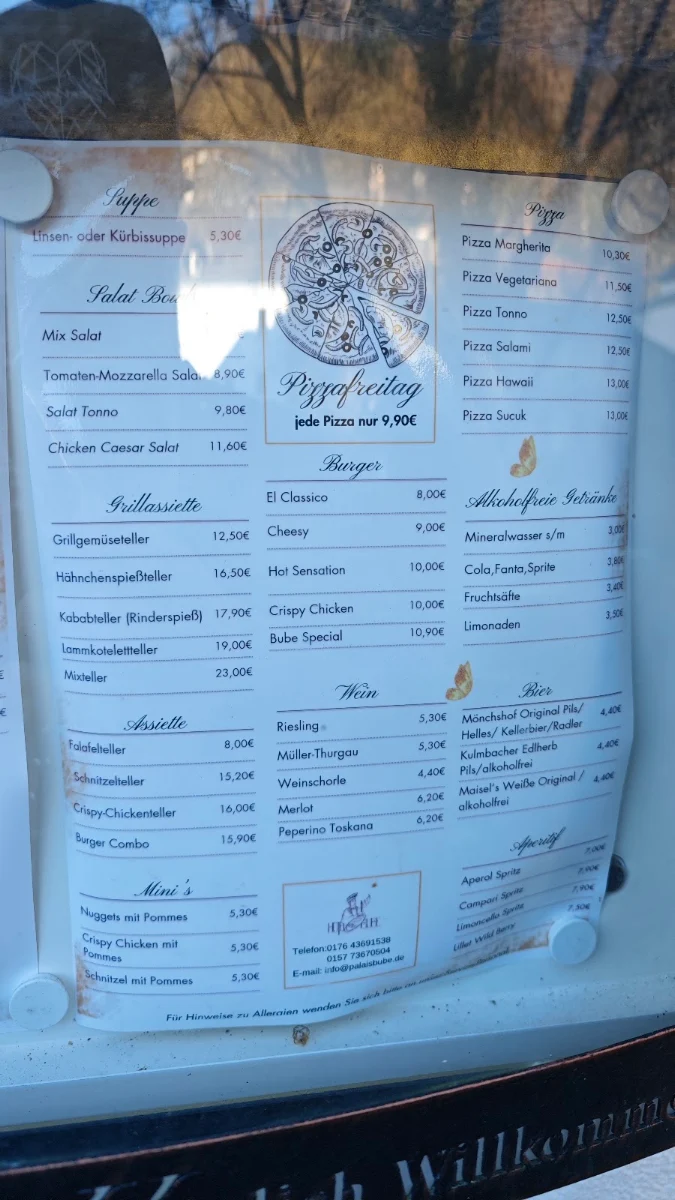 Suppe
Linsen- oder Kürbissuppe 5,30€
Salat
Mix Salat
Tomaten-Mozzarella 8,90€
Salat Tonno 9,80€
Chicken Caesar Salat 11,60€
Grillassiette
Grillgemüseteller 12,50€
Hähnchenspießteller 16,50€
Kababteller (Rinderspieß) 17,90€
Lammkotelettteller 19,00€
Mixteller 23,00€
Assiette
Falafelteller 8,00€
Schnitzelteller 15,20€
Crispy-Chickenteller 16,00€
Burger Combo 15,90€
Mini's
Nuggets mit Pommes 5,30€
Crispy Chicken mit
Pommes 5,30€
Schnitzel mit Pommes 5,30€
Pizzafreitag
jede Pizza nur 9,90€
Burger
El Classico 8,00€
Cheesy 9,00€
Hot Sensation 10,00€
Crispy Chicken 10,00€
Bube Special 10,90€
Wein
Riesling 5,30€
Müller-Thurgau 5,30€
Weinschorle 4,40€
Merlot 6,20€
Peperino Toskana 6,20€
Telefon:0176 43691538
0157 73670504
E-mail: info@palaisbube.de
Pizza
Pizza Margherita 10,30€
Pizza Vegetariana 11,50€
Pizza Tonno 12,50€
Pizza Salami 12,50€
Pizza Hawaii 13,00€
Pizza Sucuk 13,00€
Alkoholfreie Getränke
Mineralwasser s/m 3,00€
Cola,Fanta,Sprite 3,80€
Fruchtsäfte 3,40€
Limonaden 3,50€
Bier
Mönchshof Original Pils/ 4,40€
Helles/ Kellerbier/Radler
Kulmbacher Edlherb 4,40€
Pils/alkoholfrei
Maisel's Weiße Original / 4,40€
alkoholfrei
Aperitif
Aperol Spritz 7,00€
Campari Spritz 7,90€
Limoncello Spritz 7,90€
Lillet Wild Berry 7,50€
Für Hinweise zu Allergien wenden Sie sich bitte an
Willkomme